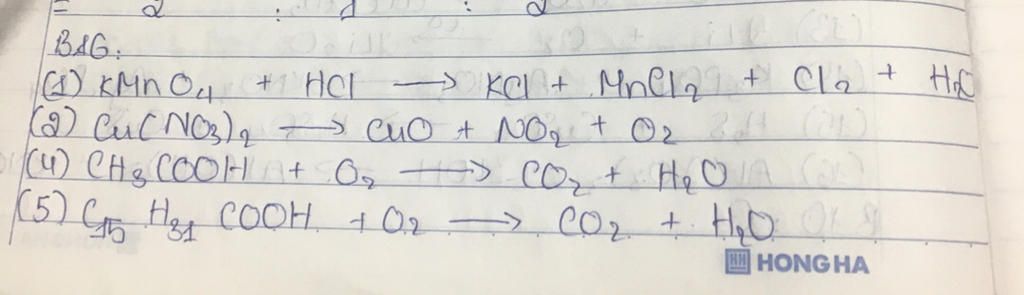 = 2 : 1 : 2
B16:
(1) KMnO4 + HCl → KCl + MnCl2 + Cl2 + H2O
(2) Cu(NO3)2 → CuO + NO2 + O2
(4) CH3COOH + O2 → CO2 + H2O
(5) C15H31COOH + O2 → CO2 + H2O
HH HONG HA